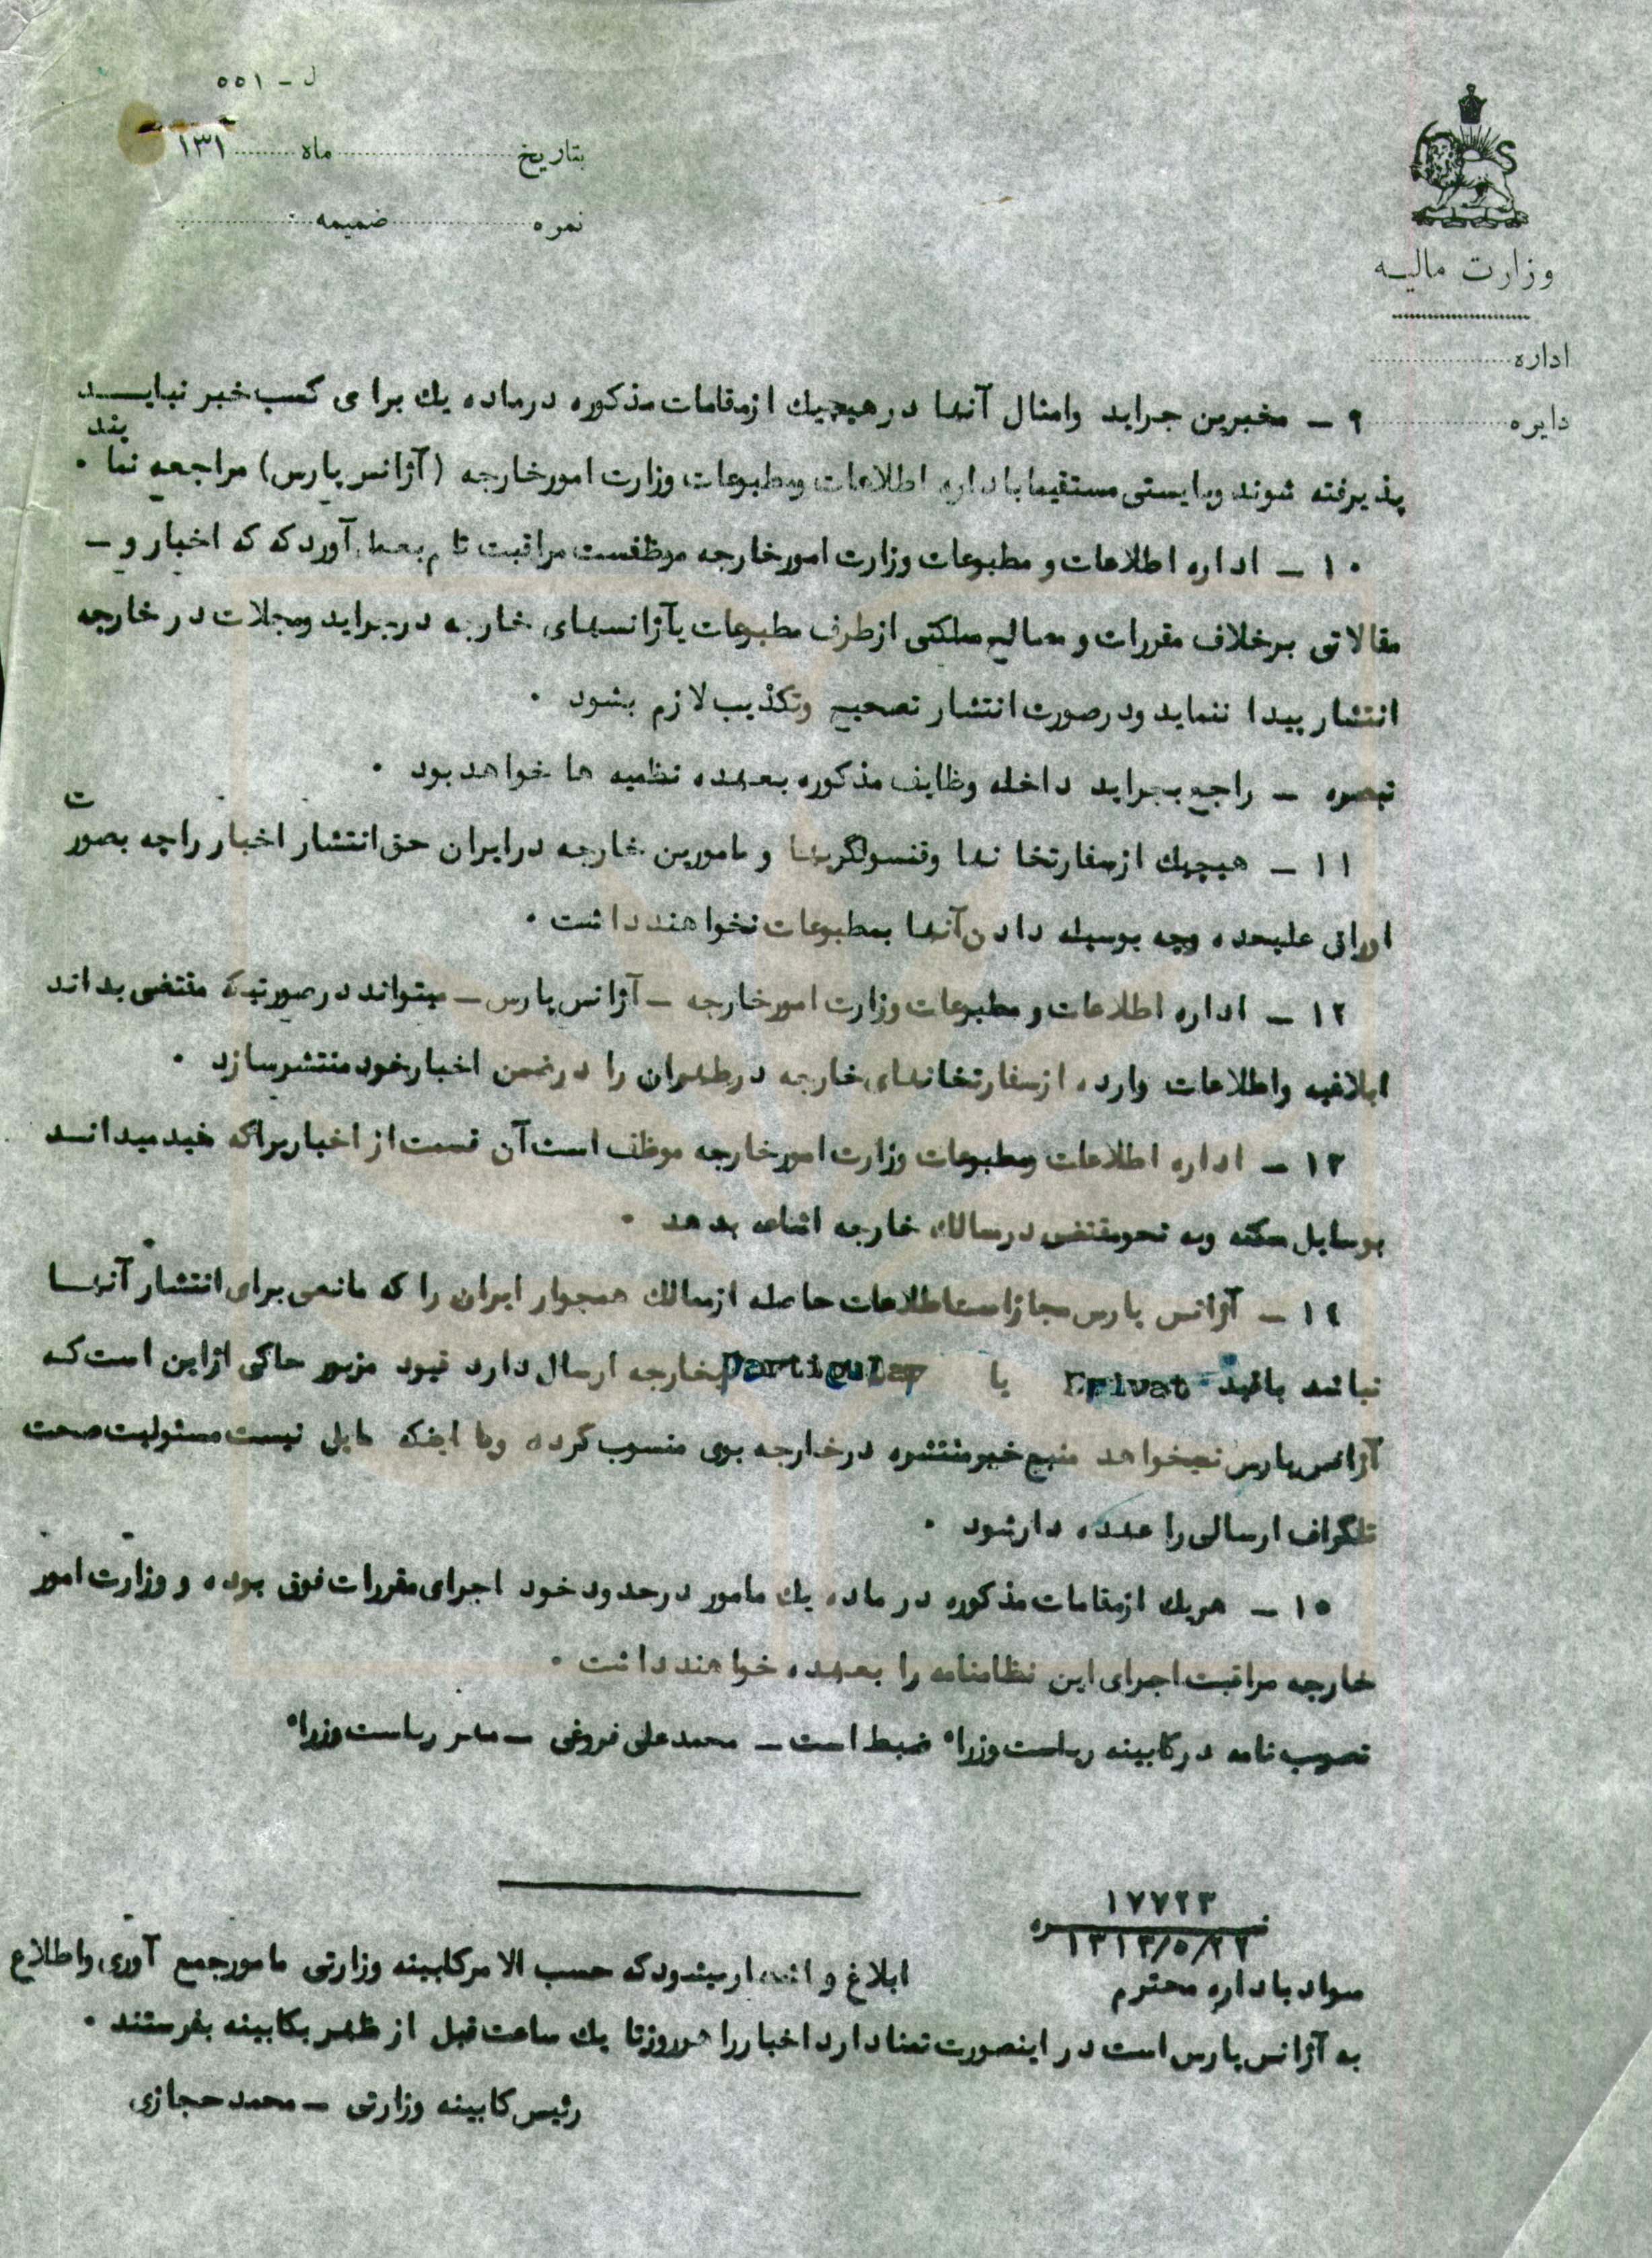 ل - ۵۵۱
بتاریخ ماه ۱۳۱
نمره ضمیمه
وزارت مالیه
اداره
دایره
۹ - مخبرین جراید وامثال آنها در هیچیك ازمقامات مذكوره درماده یك برای كسب خبر نبایـــد
پذیرفته شوند وبایستی مستقیما باداره اطلاعات ومطبوعات وزارت امورخارجه (آژانس پارس) مراجعه نمایند .
۱۰ - اداره اطلاعات و مطبوعات وزارت امورخارجه موظفست مراقبت تام بعمل آورد كه كه اخبار و -
مقالاتی برخلاف مقررات و مصالح مملكتی ازطرف مطبوعات یا آژانسهای خارجه درجراید ومجلات در خارجه
انتشار پیدا ننماید ودرصورت انتشار تصحیح وتكذیب لازم بشود .
تبصره - راجع بجراید داخله وظایف مذكوره بعهده نظمیه ها خواهد بود .
۱۱ - هیچیك ازسفارتخانها وقنسولگریها و مامورین خارجه درایران حق انتشار اخبار راچه بصورت
اوراق علیحده وچه بوسیله دادن آنها بمطبوعات نخواهند داشت .
۱۲ - اداره اطلاعات و مطبوعات وزارت امورخارجه - آژانس پارس - میتواند درصورتیكه مقتضی بداند
ابلاغیه واطلاعات وارده ازسفارتخانهای خارجه درطهران را درضمن اخبار خود منتشر سازد .
۱۳ - اداره اطلاعات ومطبوعات وزارت امورخارجه موظف است آن قسمت از اخباریراكه مفید میدانـد
بوسایل ممكنه وبه نحومقتضی درممالك خارجه اشاعه بدهد .
۱۴ - آژانس پارس مجازاست اطلاعات حاصله ازممالك همجوار ایران را كه مانعی برای انتشار آنهـا
نباشد باقید Privat یا particular بخارجه ارسال دارد قیود مزبور حاكی ازاین است كه
آژانس پارس نمیخواهد منبع خبرمنتشره درخارجه بوی منسوب گرده ویا اینكه مایل نیست مسئولیت صحت
تلگراف ارسالی را عهده دارشود .
۱۵ - هریك ازمقامات مذكوره در ماده یك مامور درحدود خود اجرای مقررات فوق بوده و وزارت امور
خارجه مراقبت اجرای این نظامنامه را بعهده خواهند داشت .
تصویب نامه دركابینه ریاست وزراء ضبط است - محمدعلی فروغی - مهر ریاست وزراء
نمره ۱۷۷۲۳
۱۳۱۳/۵/۲۲
سواد باداره محترم ابلاغ و اشعار میشود كه حسب الامر كابینه وزارتی مامورجمع آوری واطلاع
به آژانس پارس است در اینصورت تمنا دارد اخباررا هرروزتا یك ساعت قبل از ظهر بكابینه بفرستند .
رئیس كابینه وزارتی - محمد حجازی